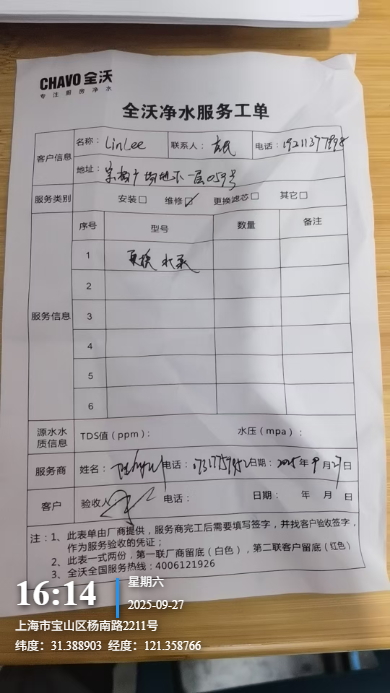 CHAVO 全沃
专注厨房净水
全沃净水服务工单
客户信息 名称: LinLee 联系人: 电话:
地址: 广场地下一层059号
服务类别 安装□ 维修☑ 更换滤芯□ 其它□
序号 型号 数量 备注
服务信息
1 更换水泵
2
3
4
5
6
源水水质信息 TDS值 (ppm): 水压 (mpa):
服务商 姓名: 电话: 日期: 2025年9月27日
客户 验收人 电话: 日期: 年 月 日
注: 1、此表单由厂商提供,服务商完工后需要填写签字,并找客户验收签字,
作为服务验收的凭证;
2、此表一式两份,第一联厂商留底(白色),第二联客户留底(红色)
3、全沃全国服务热线: 4006121926
16:14 星期六
2025-09-27
上海市宝山区杨南路2211号
纬度: 31.388903 经度: 121.358766